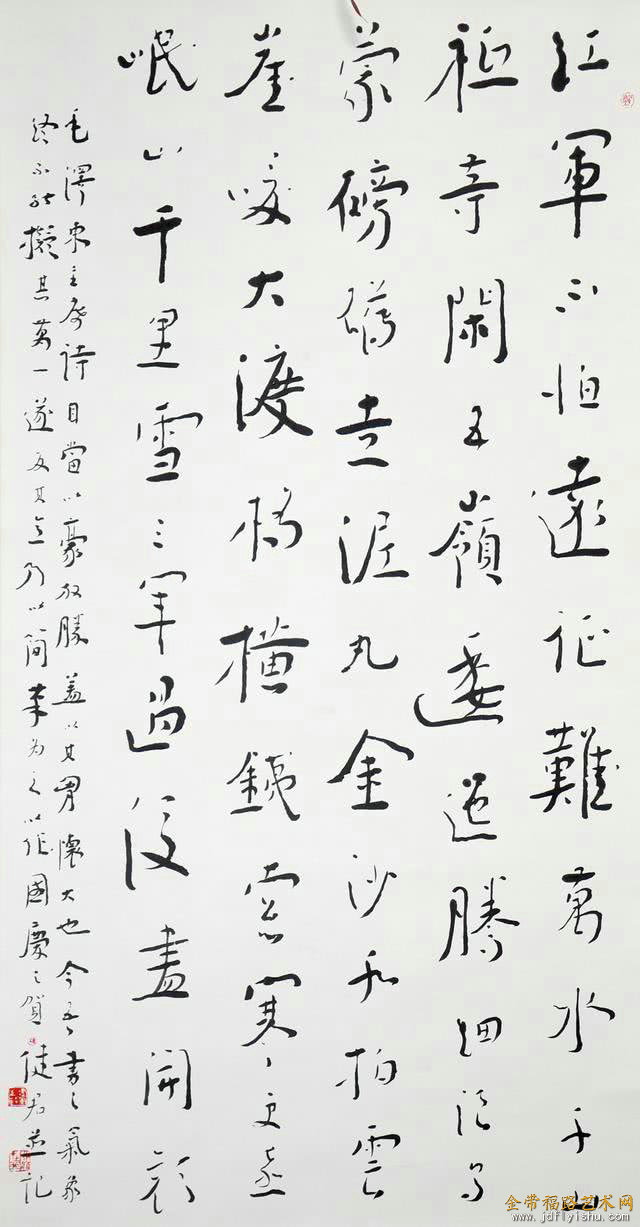 紅軍不怕遠征難萬水千山
祇等閑五嶺逶迤騰細浪烏
蒙磅礴走泥丸金沙水拍雲
崖暖大渡橋橫鐵索寒更喜
岷山千里雪三軍過後盡開顏
毛澤東主席詩自當以豪放勝蓋以其胸懷大也今吾書之氣象
終不能擬其萬一遂反其意乃以簡素为之以作國慶之賀健君並記
金带福路艺术网
www.jdflyishu.com